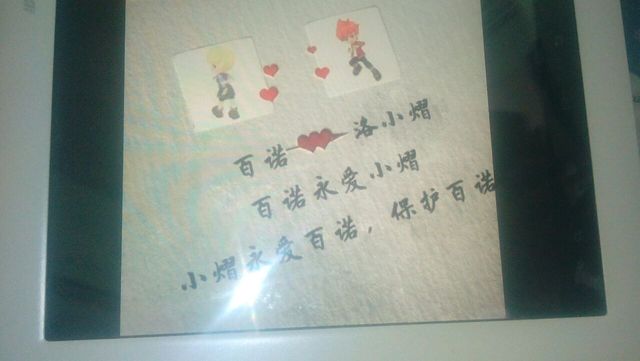 百诺洛小熠
百诺永爱小熠
小熠永爱百诺，保护百诺